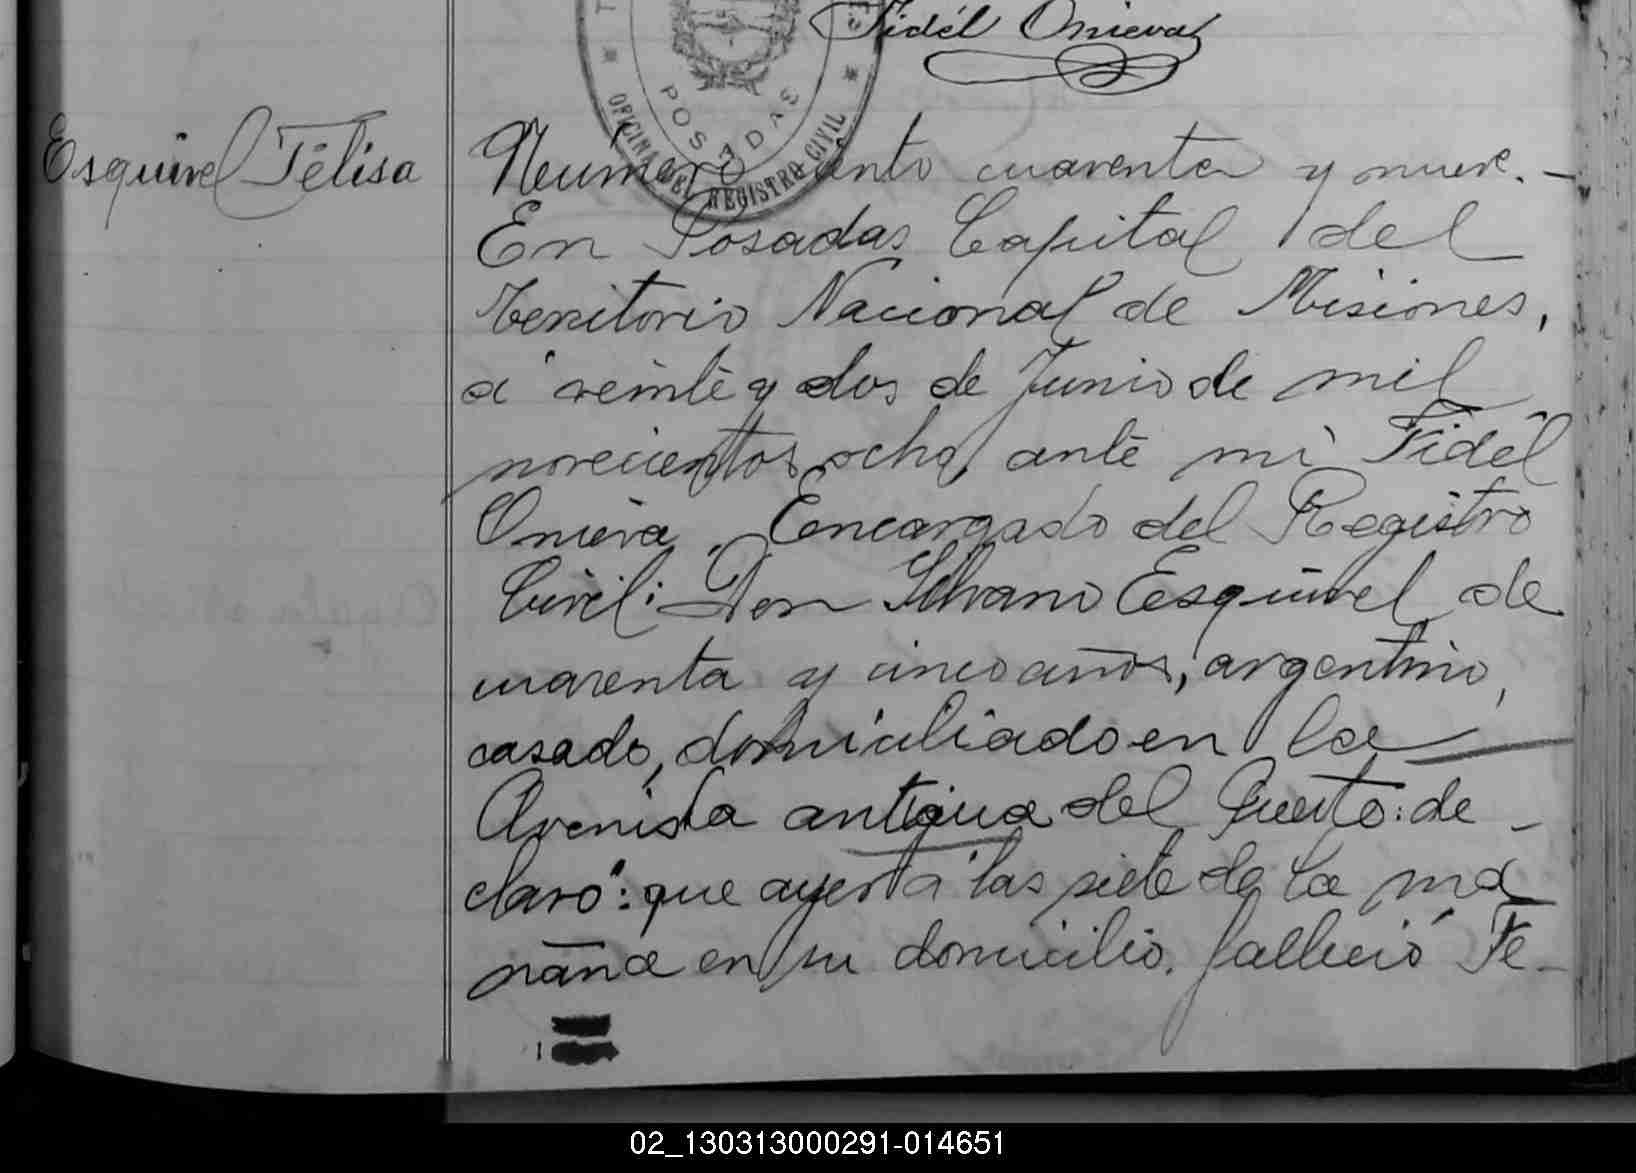 Fidél Onieva
T
POSADAS
OFICINA DEL REGISTRO CIVIL
Esquivel Félisa
Número ciento cuarenta y nueve. -
En Posadas Capital del
Territorio Nacional de Misiones,
á veinte y dos de Junio de mil
novecientos ocho, ante mi Fidél
Onieva, Encargado del Registro
Civil: Don Silvano Esquivel de
cuarenta y cinco años, argentino,
casado, domiciliado en la
Avenida antigua del Puerto: de-
claró: que ayer á las siete de la ma
ñana en su domicilio. falleció Fe-
02_130313000291-014651